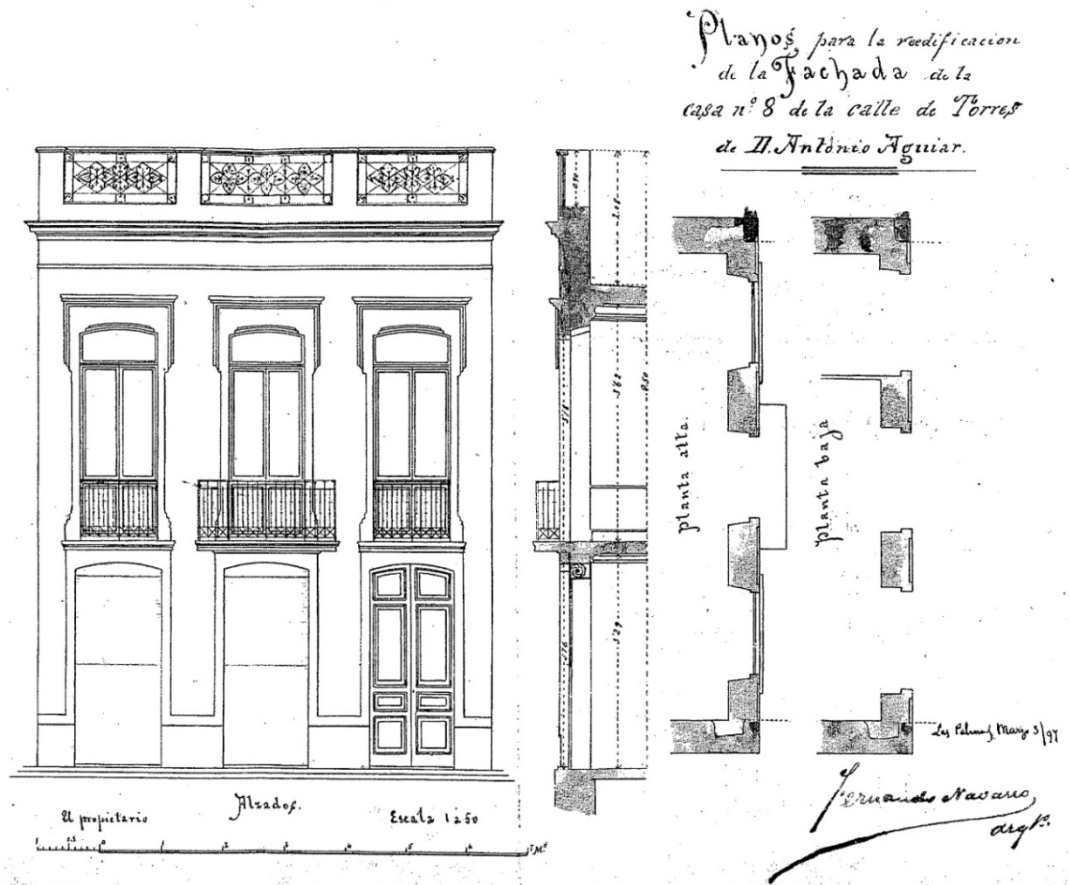 Planos para la reedificacion
de la Fachada de la
casa nº 8 de la calle de Torres
de D. António Aguiar.
planta alta.
planta baja
Las Palmas, Marzo 3/97
Fernando Navarro
arqto.
Alzados.
El propietario
Escala 1 a 50
1 0.5 0 1 2 3 4 5 6 7 Ms